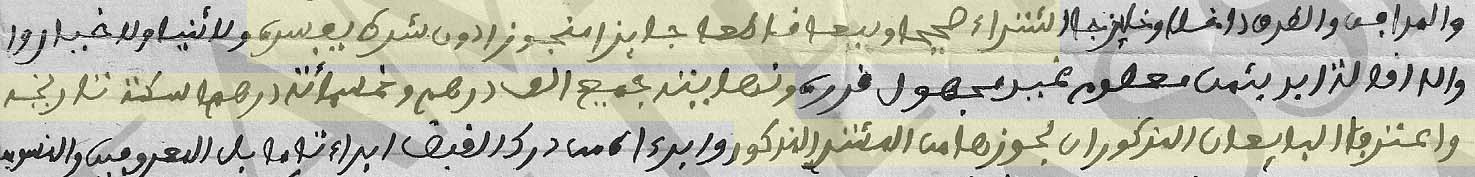 والمرافق والطرق داخلا وخارجا اشتراء صحيحا وبيعا قاطعا جايزا منجوزا دون شرط يفسده ولا ثنيا ولا خيار ولا
والة بثمن معلوم غير مجهول قدره ونهايته جميع الف درهم وخمسمائة درهم سكة تاريخه
واعترفا البايعان المذكوران بحوزها من المشتر المذكور وابرءاه من درك القبض ابراء تاما بل المعروفين والنسوب